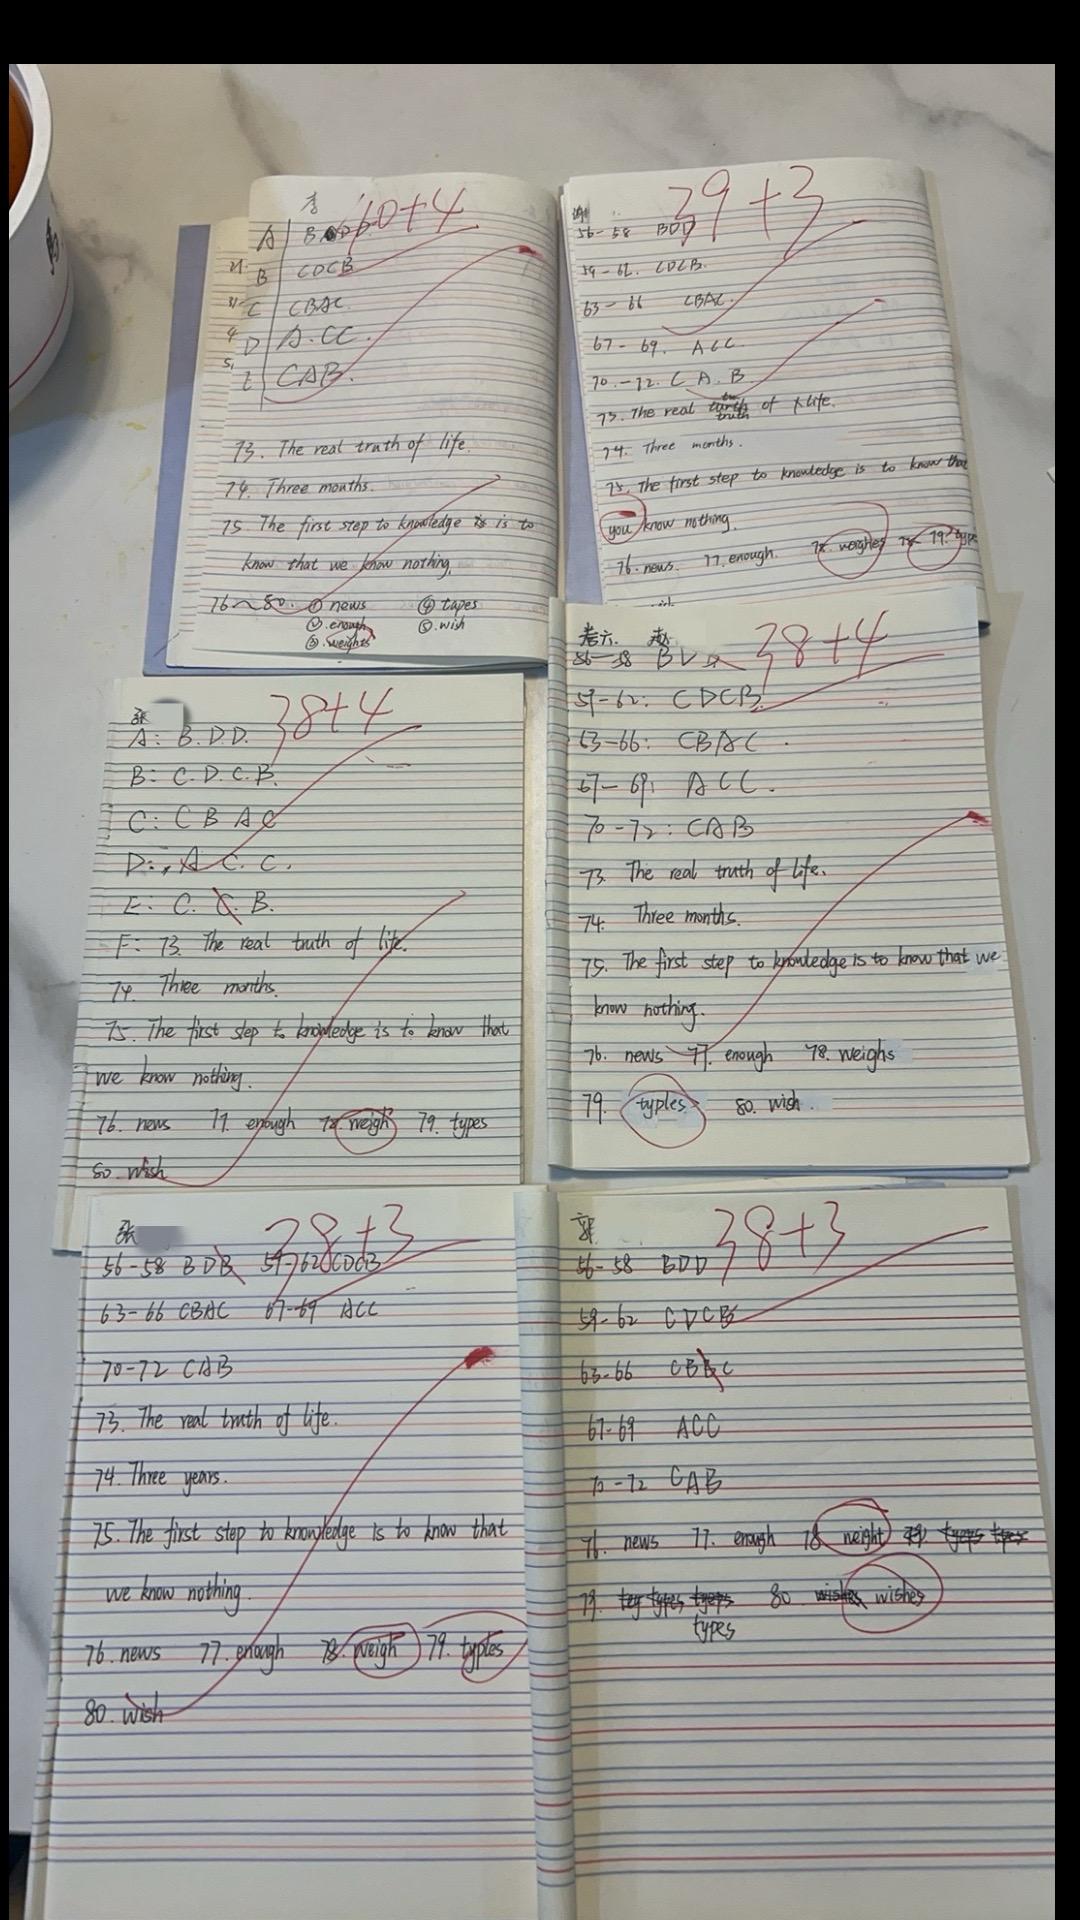 李 60+4
A B D D
21. B CDCB
31. C CBAC
4 D A.CC.
5, E CAB.
73. The real truth of life.
74. Three months.
75. The first step to knowledge is is to
know that we know nothing.
76~80. ① news ④ tapes
② enough ⑤ wish
③ weights
谢 39+3
56-58 BDD
59-62. CDCB.
63-66 CBAC.
67-69. ACC.
70.-72. C A. B.
73. The real truth of life.
74. Three months.
75. The first step to knowledge is to know that
you know nothing.
76. news. 77. enough. 78. weighes 79. type
wish
张 38+4
A: B.D.D.
B: C.D.C.B.
C: C B A C
D: A C. C.
E: C. C. B.
F: 73. The real truth of life.
74. Three months.
75. The first step to knowledge is to know that
we know nothing.
76. news 77. enough 78 weigh 79. types
80. wish
卷六. 赵 38+4
56-58 B
59-62: CDCB
63-66: CBAC.
67-69: ACC.
70-72: CAB
73. The real truth of life.
74. Three months.
75. The first step to knowledge is to know that we
know nothing.
76. news 77. enough 78. weighs
79. typles 80. wish.
张 38+3
56-58 BDB 59-62 CDCB
63-66 CBAC 67-69 ACC
70-72 CAB
73. The real truth of life.
74. Three years.
75. The first step to knowledge is to know that
we know nothing.
76. news 77. enough 78. weigh 79. typles
80. wish
郭 38+3
56-58 BDD
59-62 CDCB
63-66 CBBC
67-69 ACC
70-72 CAB
76. news 77. enough 78 neight 79. tyeps tpes
79. tey types tyeps 80 wishes wishes
types